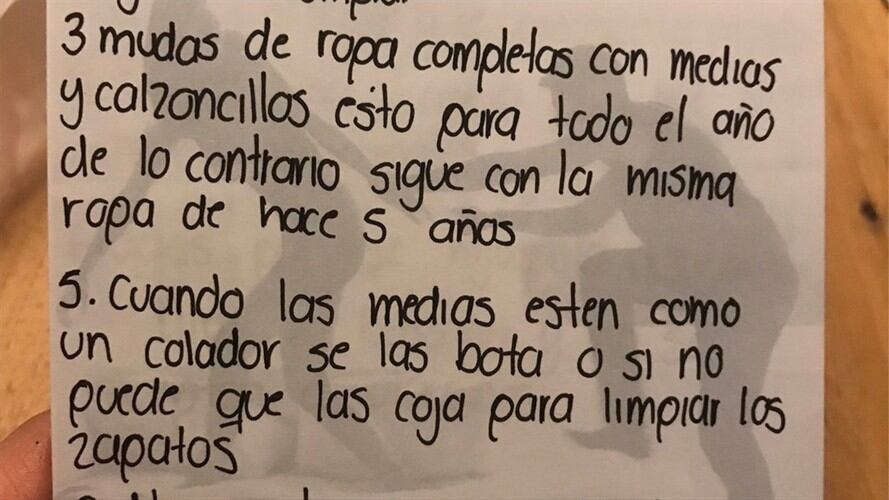 3 mudas de ropa completas con medias
y calzoncillos esto para todo el año
de lo contrario sigue con la misma
ropa de hace 5 años
5. Cuando las medias esten como
un colador se las bota o si no
puede que las coja para limpiar los
zapatos